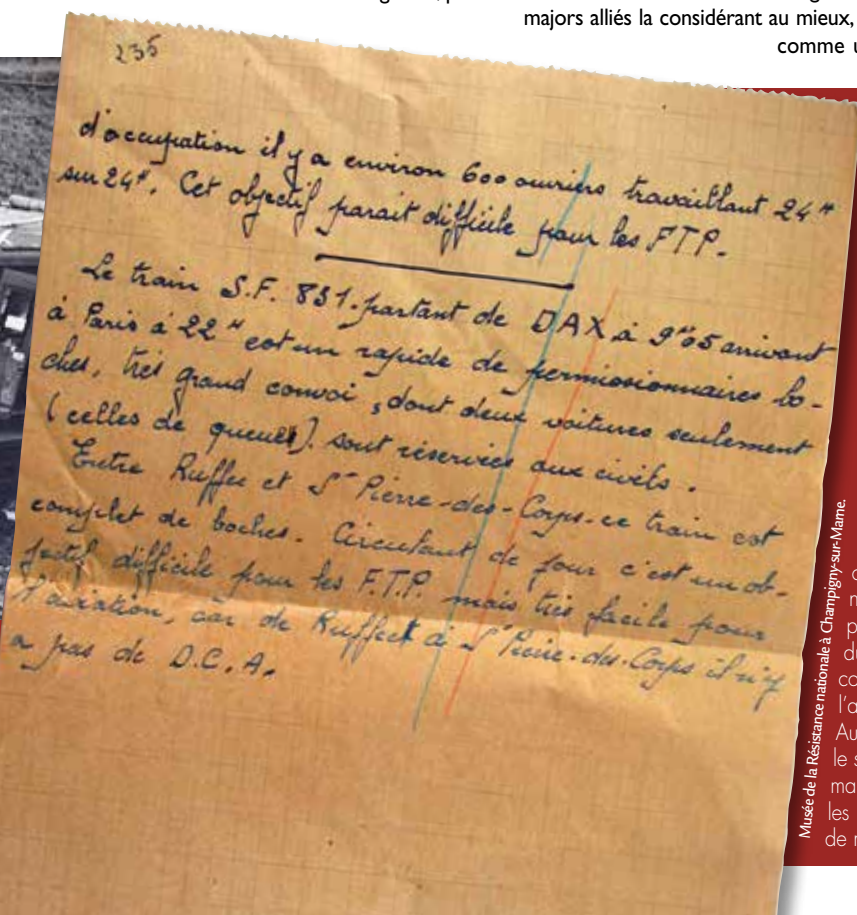 majors alliés la considérant au mieux,
comme u
235
d'occupation il y a environ 600 ouvriers travaillant 24H
sur 24H. Cet objectif parait difficile pour les FTP.
Le train S.F. 831. partant de DAX à 9H05 arrivant
à Paris à 22H est un rapide de permissionnaires bo-
ches, très grand convoi, dont deux voitures seulement
(celles de queues). sont réservées aux civils.
Entre Ruffec et St Pierre-des-Corps-ce train est
complet de boches. Circulant de jour c'est un ob-
jectif difficile pour les F.T.P. mais très facile pour
l'aviation, car de Ruffect à St Pierre-des-Corps il n'y
a pas de D.C.A.
Musée de la Résistance nationale à Champigny-sur-Marne.
m
p
du
co
l'a
Au
le s
ma
les
de n